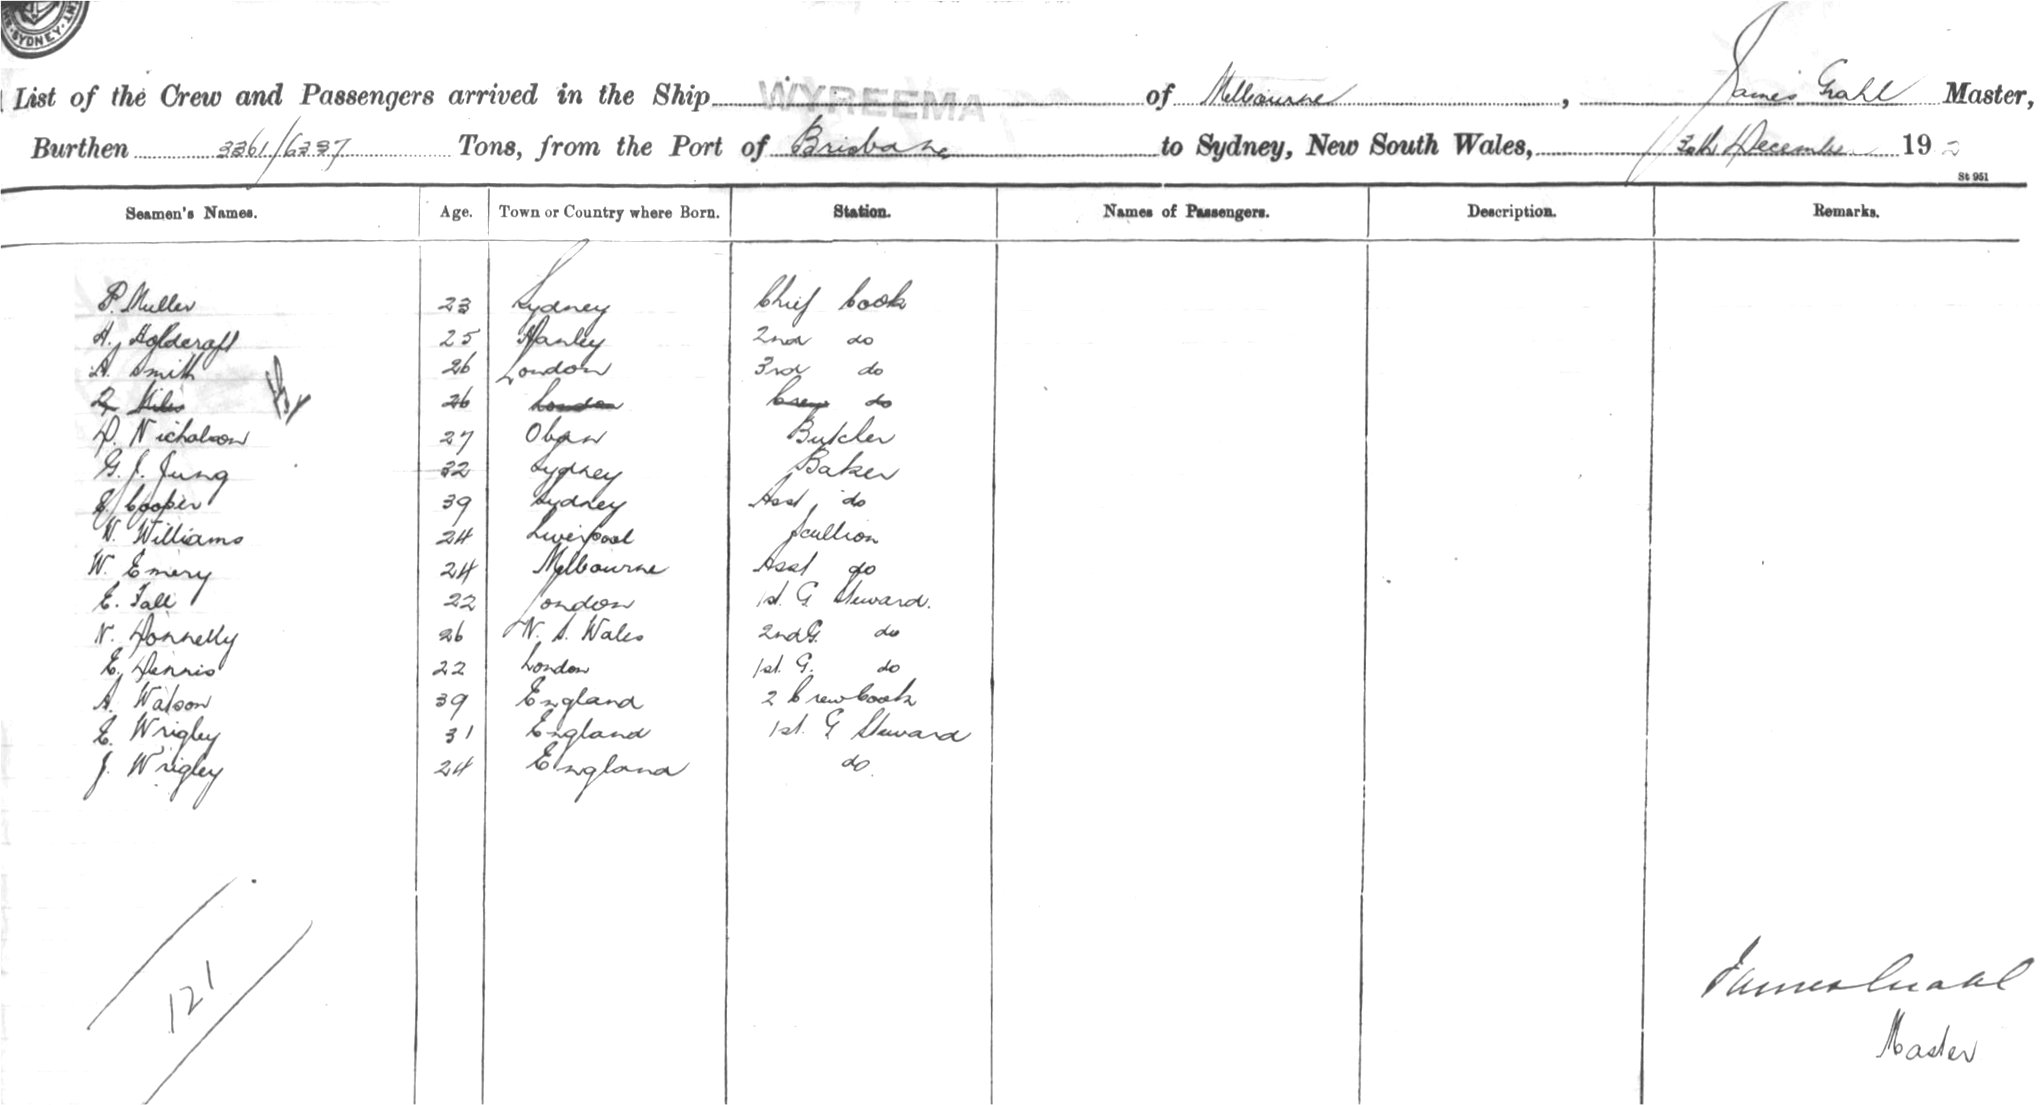 SYDNEY
List of the Crew and Passengers arrived in the Ship WYREEMA of Melbourne, James Grahl Master,
Burthen 3361/6337 Tons, from the Port of Brisbane to Sydney, New South Wales, 30th December 192
St 951
Seamen's Names. Age. Town or Country where Born. Station. Names of Passengers. Description. Remarks.
P. Muller 23 Sydney Chief Cook
H. Holdcraft 25 Hanley 2nd do
A. Smith 26 London 3rd do
26 London Crew do
D. Nicholson 27 Oban Butcher
G. J. Jung 32 Sydney Baker
E. Cooper 39 Sydney Asst do
W. Williams 24 Liverpool Scullion
W. Emery 24 Melbourne Asst do
E. Tall 22 London 1st. G. Steward.
N. Donnelly 26 N. S. Wales 2nd G. do
E. Dennis 22 London 1st. G. do
A. Watson 39 England 2 Crew Cook
E. Wrigley 31 England 1st. G Steward
J. Wrigley 24 England do
121
James Grahl
Master